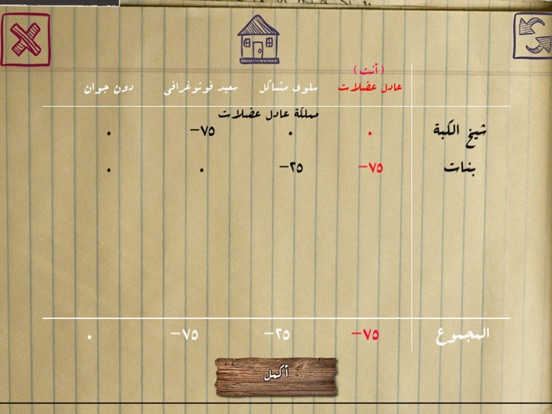 (أنت)
عادل عضلات سلوى مشاكل سعيد فوتوغرافى دون جوان
مملكة عادل عضلات
شيخ الكبة ٠ ٠ ٧٥− ٠
بنات ٧٥− ٢٥− ٠ ٠
المجموع ٧٥− ٢٥− ٧٥− ٠
أكمل